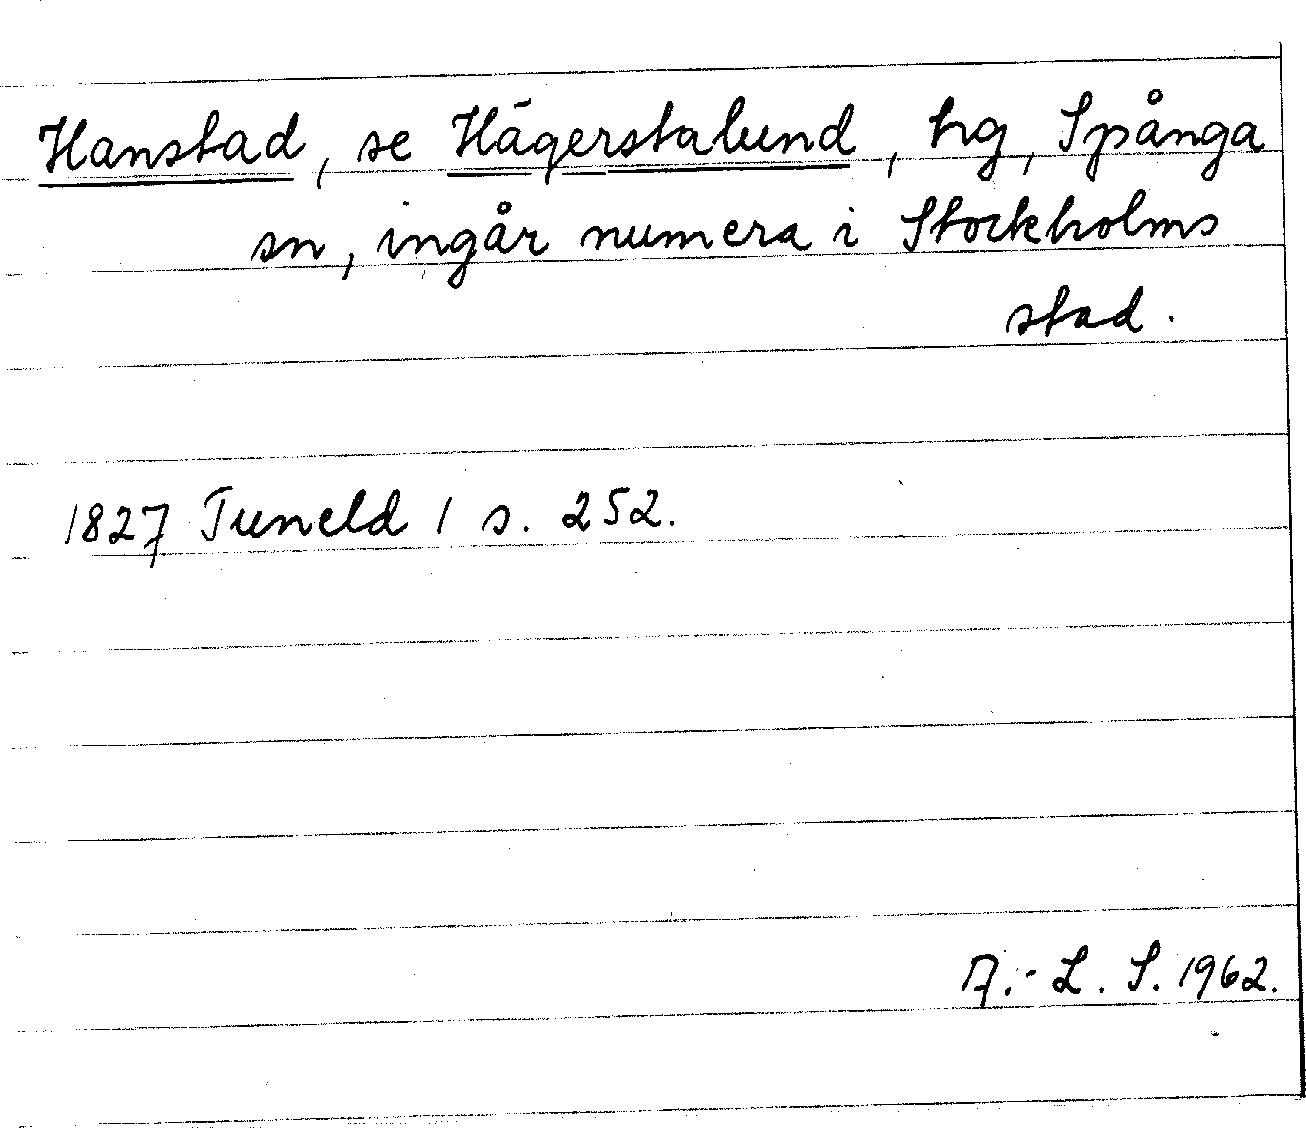 Hanstad, se Hägerstalund, hg, Spånga
sn, ingår numera i Stockholms
stad.
1827 Tuneld 1 s. 252.
A.-L. S. 1962.